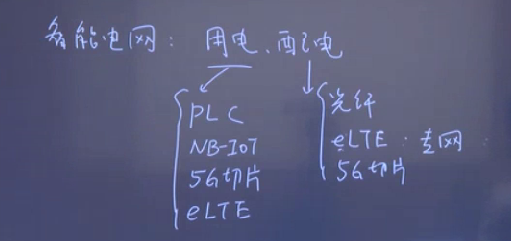 智能电网：用电、配电
PLC
NB-IoT
5G切片
eLTE
光纤
eLTE：专网
5G切片